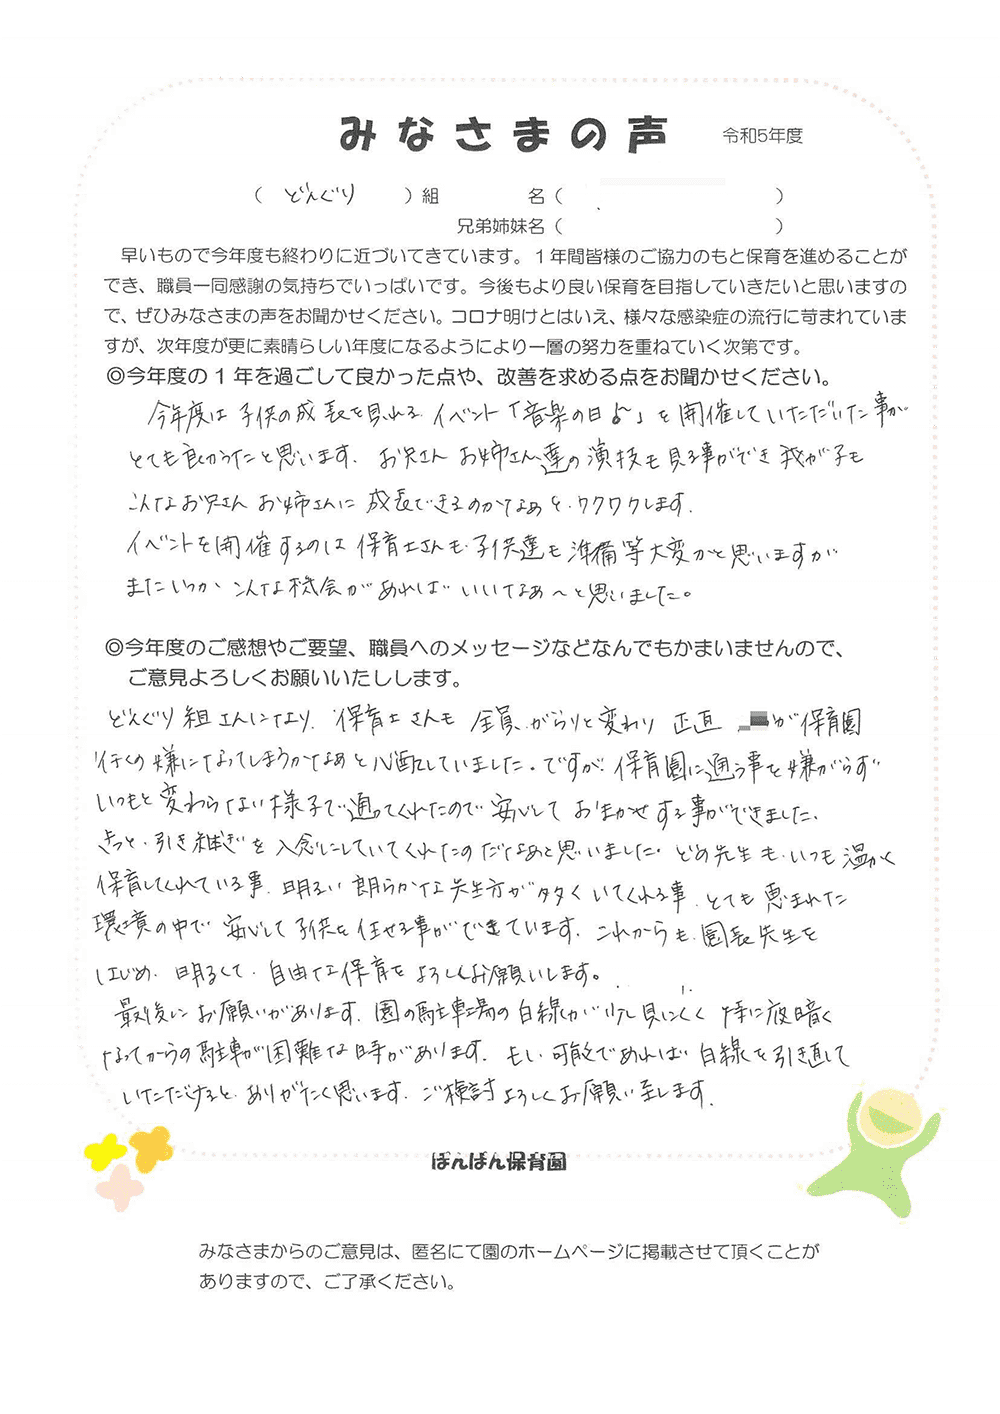 みなさまの声 令和5年度
( どんぐり )組 名( )
兄弟姉妹名( )
早いもので今年度も終わりに近づいてきています。1年間皆様のご協力のもと保育を進めることが
でき、職員一同感謝の気持ちでいっぱいです。今後もより良い保育を目指していきたいと思いますの
で、ぜひみなさまの声をお聞かせください。コロナ明けとはいえ、様々な感染症の流行に苛まれていま
すが、次年度が更に素晴らしい年度になるようにより一層の努力を重ねていく次第です。
◎今年度の1年を過ごして良かった点や、改善を求める点をお聞かせください。
今年度は子供の成長を見れるイベント「音楽の日♪」を開催していただいた事が
とても良かったと思います。お兄さんお姉さん達の演技も見る事ができ我が子も
こんなお兄さんお姉さんに成長できるのかなぁと、ワクワクします。
イベントを開催するのは保育士さんも子供達も準備等大変かと思いますが
またいつかこんな機会があればいいなぁ〜と思いました。
◎今年度のご感想やご要望、職員へのメッセージなどなんでもかまいませんので、
ご意見よろしくお願いいたしします。
どんぐり組さんになり、保育士さんも全員がらりと変わり正直 が保育園
行くの嫌になってしまうかなぁと心配していました。ですが、保育園に通う事を嫌がらず
いつもと変わらない様子で通ってくれたので安心しておまかせする事ができました。
きっと、引き継ぎを入念にしていてくれたのだなぁと思いました。どの先生も、いつも温かく
保育してくれている事、明るい朗らかな先生方が多くいてくれる事、とても恵まれた
環境の中で安心して子供を任せる事ができています。これからも、園長先生を
はじめ、明るくて、自由な保育をよろしくお願いします。
最後にお願いがあります。園の駐車場の白線が少し見にくく特に夜暗く
なってからの駐車が困難な時があります。もし可能であれば白線を引き直して
いただけると、ありがたく思います。ご検討よろしくお願い致します。
ぽんぽん保育園
みなさまからのご意見は、匿名にて園のホームページに掲載させて頂くことが
ありますので、ご了承ください。